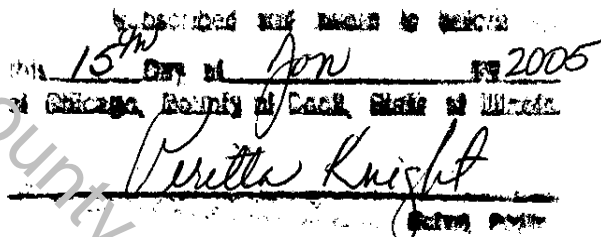 Subscribed and sworn to before
this 15th Day of Jan 2005
at Chicago, County of Cook, State of Illinois.
Knight
Notary Public
ounty